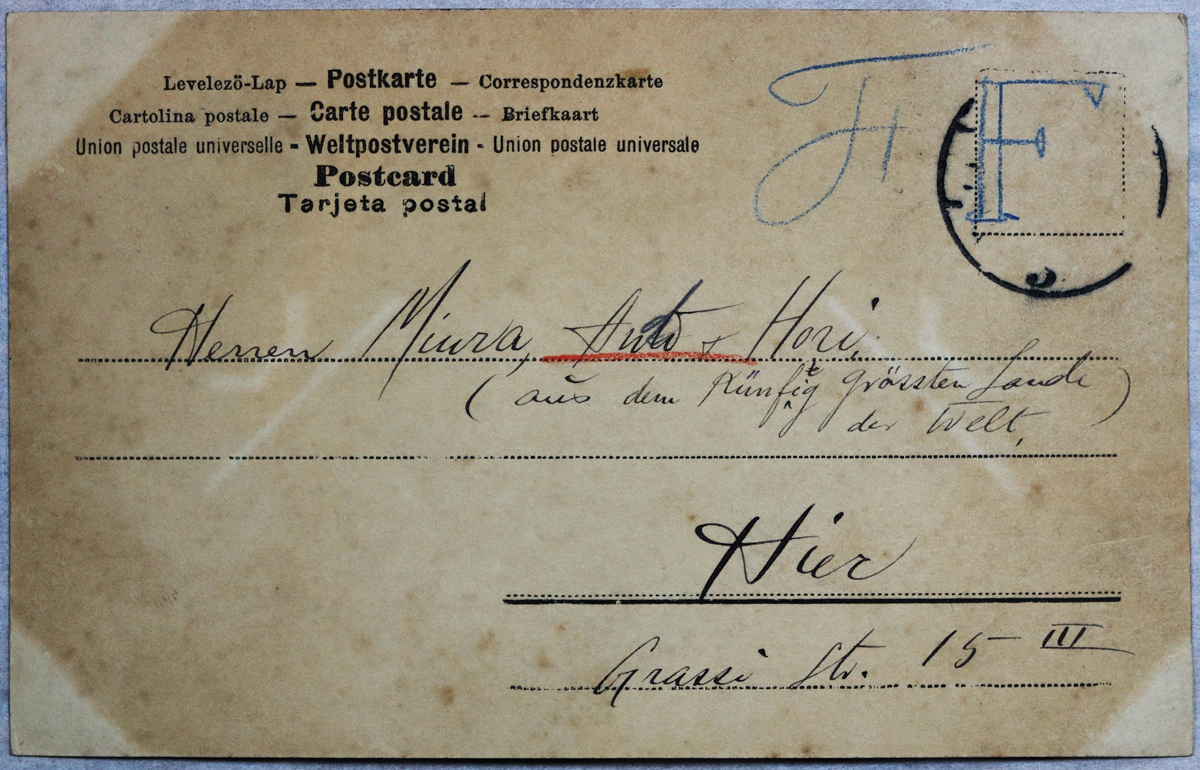 Levelezö-Lap — Postkarte — Correspondenzkarte
Cartolina postale — Carte postale -- Briefkaart
Union postale universelle - Weltpostverein - Union postale universale
Postcard
Tarjeta postal
F
Herren Miura, & Hori,
(aus dem Künftig grössten Lande
der Welt)
Hier
Grassi Str. 15 III